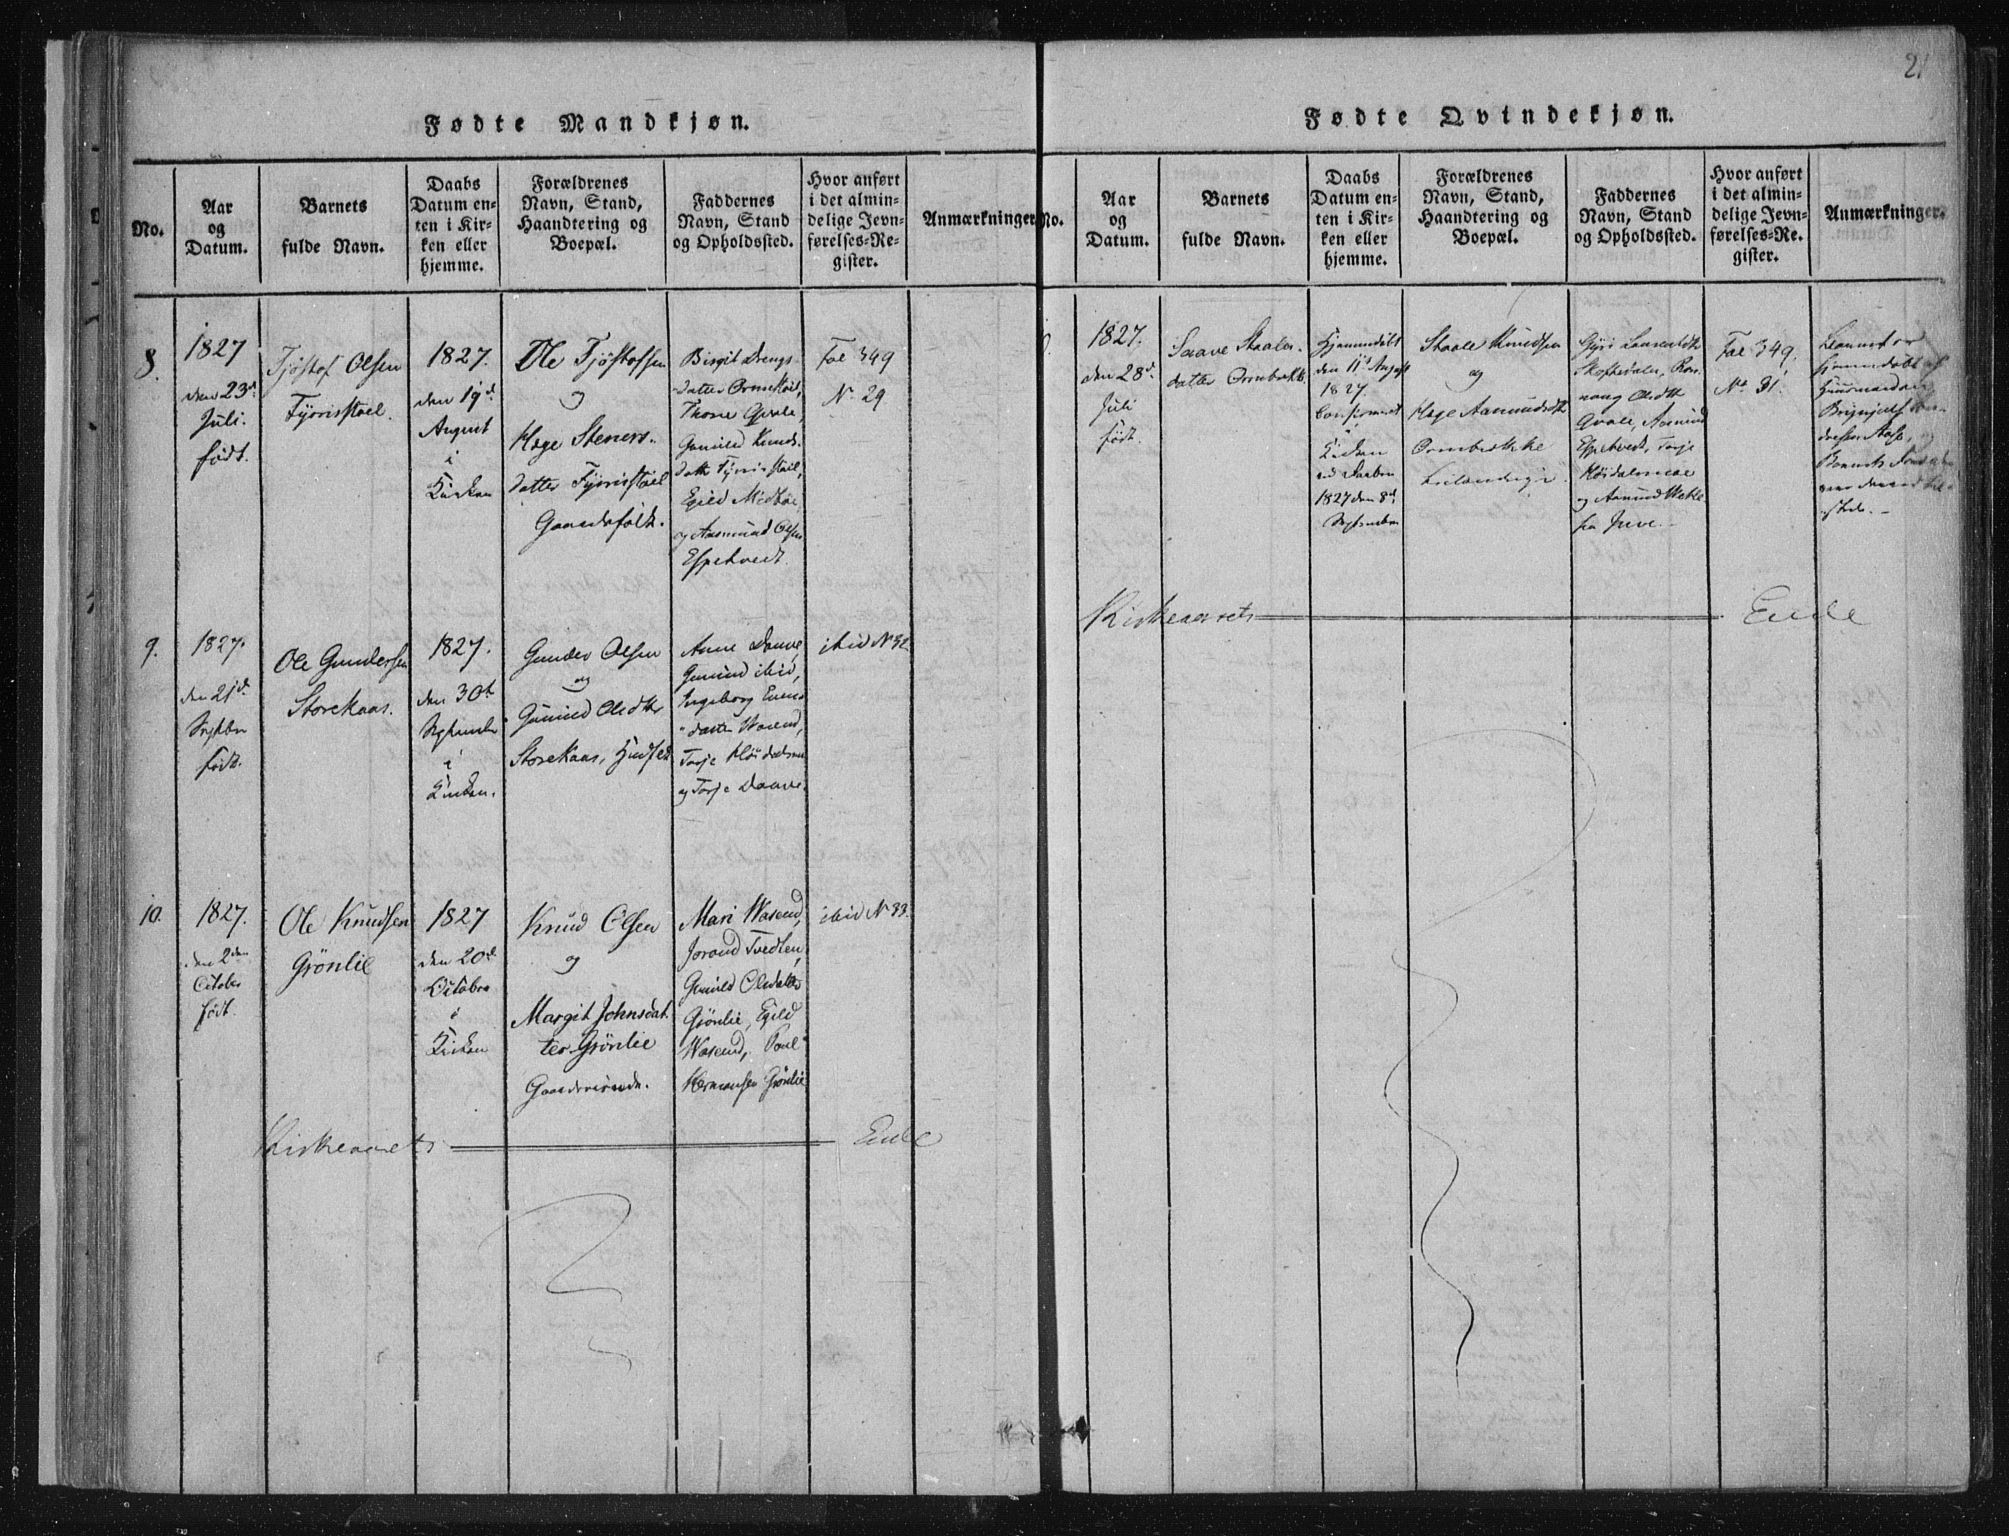 21
Fødte Mandkjøn.
No.
Aar
og
Datum.
Barnets
fulde Navn.
Daabs
Datum en-
ten i Kir-
ken eller
hjemme.
Forældrenes
Navn, Stand,
Haandtering og
Boepæl.
Faddernes
Navn, Stand
og Opholdssted.
Hvor anført
i det almin-
delige Jevn-
førelses-Re-
gister.
Anmærkninger.
8.
1827
den 23d
Juli
født.
Tjöstof Olsen
Tjönstoel.
1827.
den 19d
August
i
Kirken
Ole Tjöstofsen
og
Hæge Steners-
datter
Gaardsfolk.
Birgit Drengs-
datter
Thone Qvale,
Gunild Knuds-
datter
Egild Midböe
og Aasmund Olsen
Espetvedt.
Fol 349
No 29
9.
1827.
den 21d
Septbr
født.
Ole Gundersen
Storekaas.
1827.
den 30t
September
i
Kirken.
Gunder Olsen
og
Gunild Olsdtter
Storekaas,
Anne Daave,
Gunild ibid,
Ingeborg
datter Wasend,
Torje
og Torje Daave.
ibid No 32
10.
1827.
den 2den
October
født.
Ole Knudsen
Grönlie
1827
den 20d
Octobr
i
Kirken
Knud Olsen
og
Margit Johnsdat-
ter Grönlie
Mari Wasend,
Jorand Tvedten,
Gunild Olsdatter
Grönlie, Egild
Wasend, Poul
Hermansen Grönlie
ibid No 33.
Kirkeaarets Ende
Fødte Qvindekjøn.
No.
Aar
og
Datum.
Barnets
fulde Navn.
Daabs
Datum en-
ten i Kir-
ken eller
hjemme.
Forældrenes
Navn, Stand,
Haandtering og
Boepæl.
Faddernes
Navn, Stand
og Opholdssted.
Hvor anført
i det almin-
delige Jevn-
førelses-Re-
gister.
Anmærkninger.
1827.
den 28d
Juli
født.
Saave Staales-
datter Ormbrekke
Hjemmedöbt
den 11te August
1827.
Confirmeret
i
Kirken
1827 den 8d
September
Staale Knudsen
og
Hæge Aasmundsdtr
Ormbrekke
Qvale, Aasmund
Espetvedt, Torje
og Aanund
fra Juve.
Fol 349.
No 31.
Barnet er
hjemmedöbt af
Kirkeaarets Ende